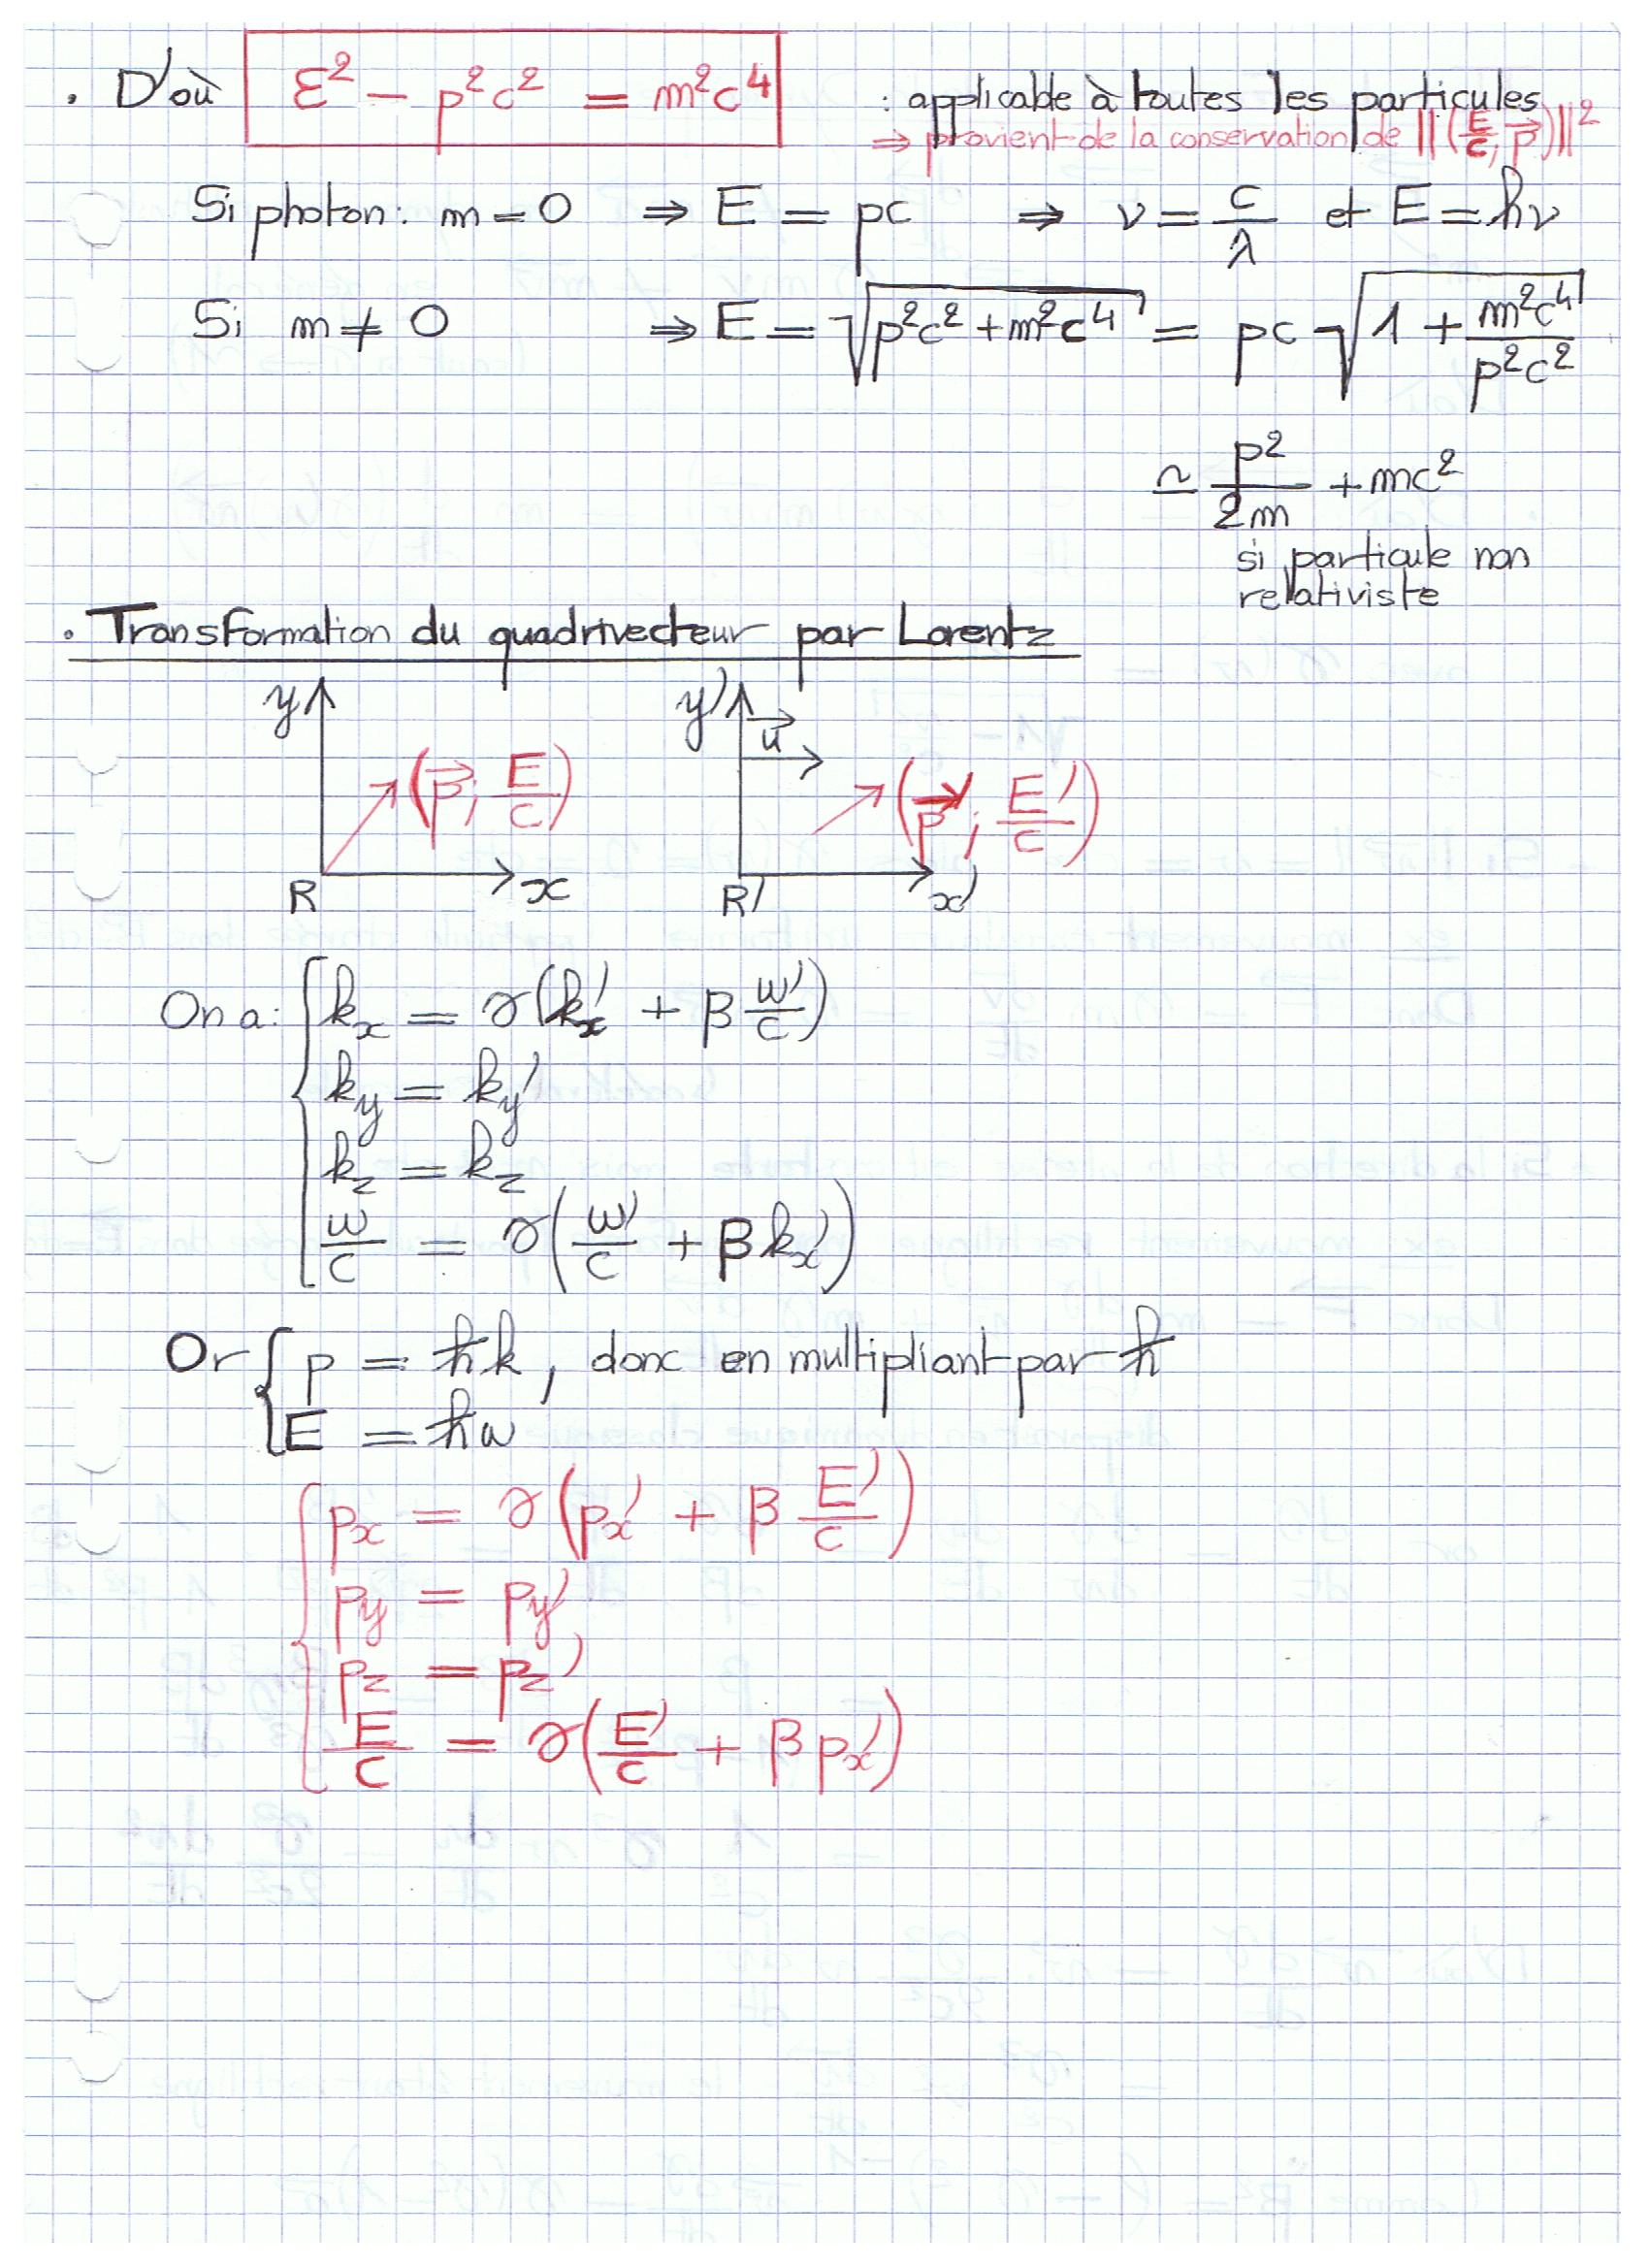 . D'où E² − p²c² = m²c⁴ : applicable à toutes les particules
⇒ provient de la conservation de ||(E/c; p⃗)||²
Si photon : m = 0 ⇒ E = pc ⇒ ν = c/λ et E = hν
Si m ≠ 0 ⇒ E = √(p²c² + m²c⁴) = pc √(1 + m²c⁴/p²c²)
≃ p²/2m + mc²
si particule non
relativiste
. Transformation du quadrivecteur par Lorentz
y (p⃗; E/c) R x
y' u⃗ (p⃗'; E'/c) R' x'
On a : { kx = γ(kx' + β ω'/c)
ky = ky'
kz = kz
ω/c = γ(ω'/c + β kx')
Or { p = ħk, donc en multipliant par ħ
E = ħω
{ px = γ(px' + β E'/c)
py = py'
pz = pz'
E/c = γ(E'/c + β px')